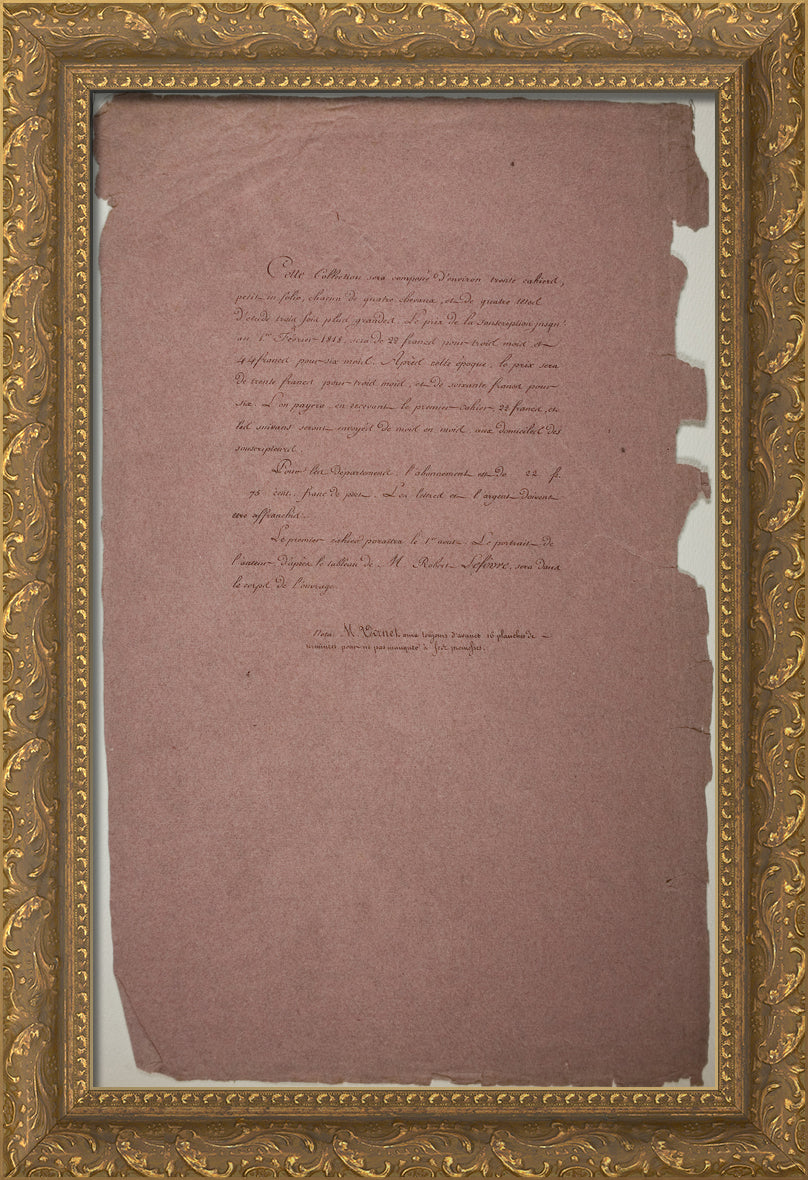 Cette Collection sera composée d'environ trente cahiers,
petit in folio, chacun de quatre chevaux, et de quatre têtes
d'étude trois fois plus grandes. Le prix de la souscription jusqu'
au 1er Février 1818, sera de 22 francs pour trois mois et
44 francs pour six mois. Après cette époque, le prix sera
de trente francs pour trois mois, et de soixante francs pour
six. L'on payera en recevant le premier cahier 22 francs, et
les suivans seront envoyés de mois en mois, aux domiciles des
souscripteurs.
Pour les départemens, l'abonnement est de 22 fr.
75 cent. franc de port. Les lettres et l'argent doivent
être affranchis.
Le premier cahier paraîtra le 1er Le portrait de
l'auteur d'après le tableau de M. Robert Lefèvre, sera dans
le corps de l'ouvrage.
Nota. M. Vernet aura toujours d'avance 16 planches de
pour ne pas manquer à